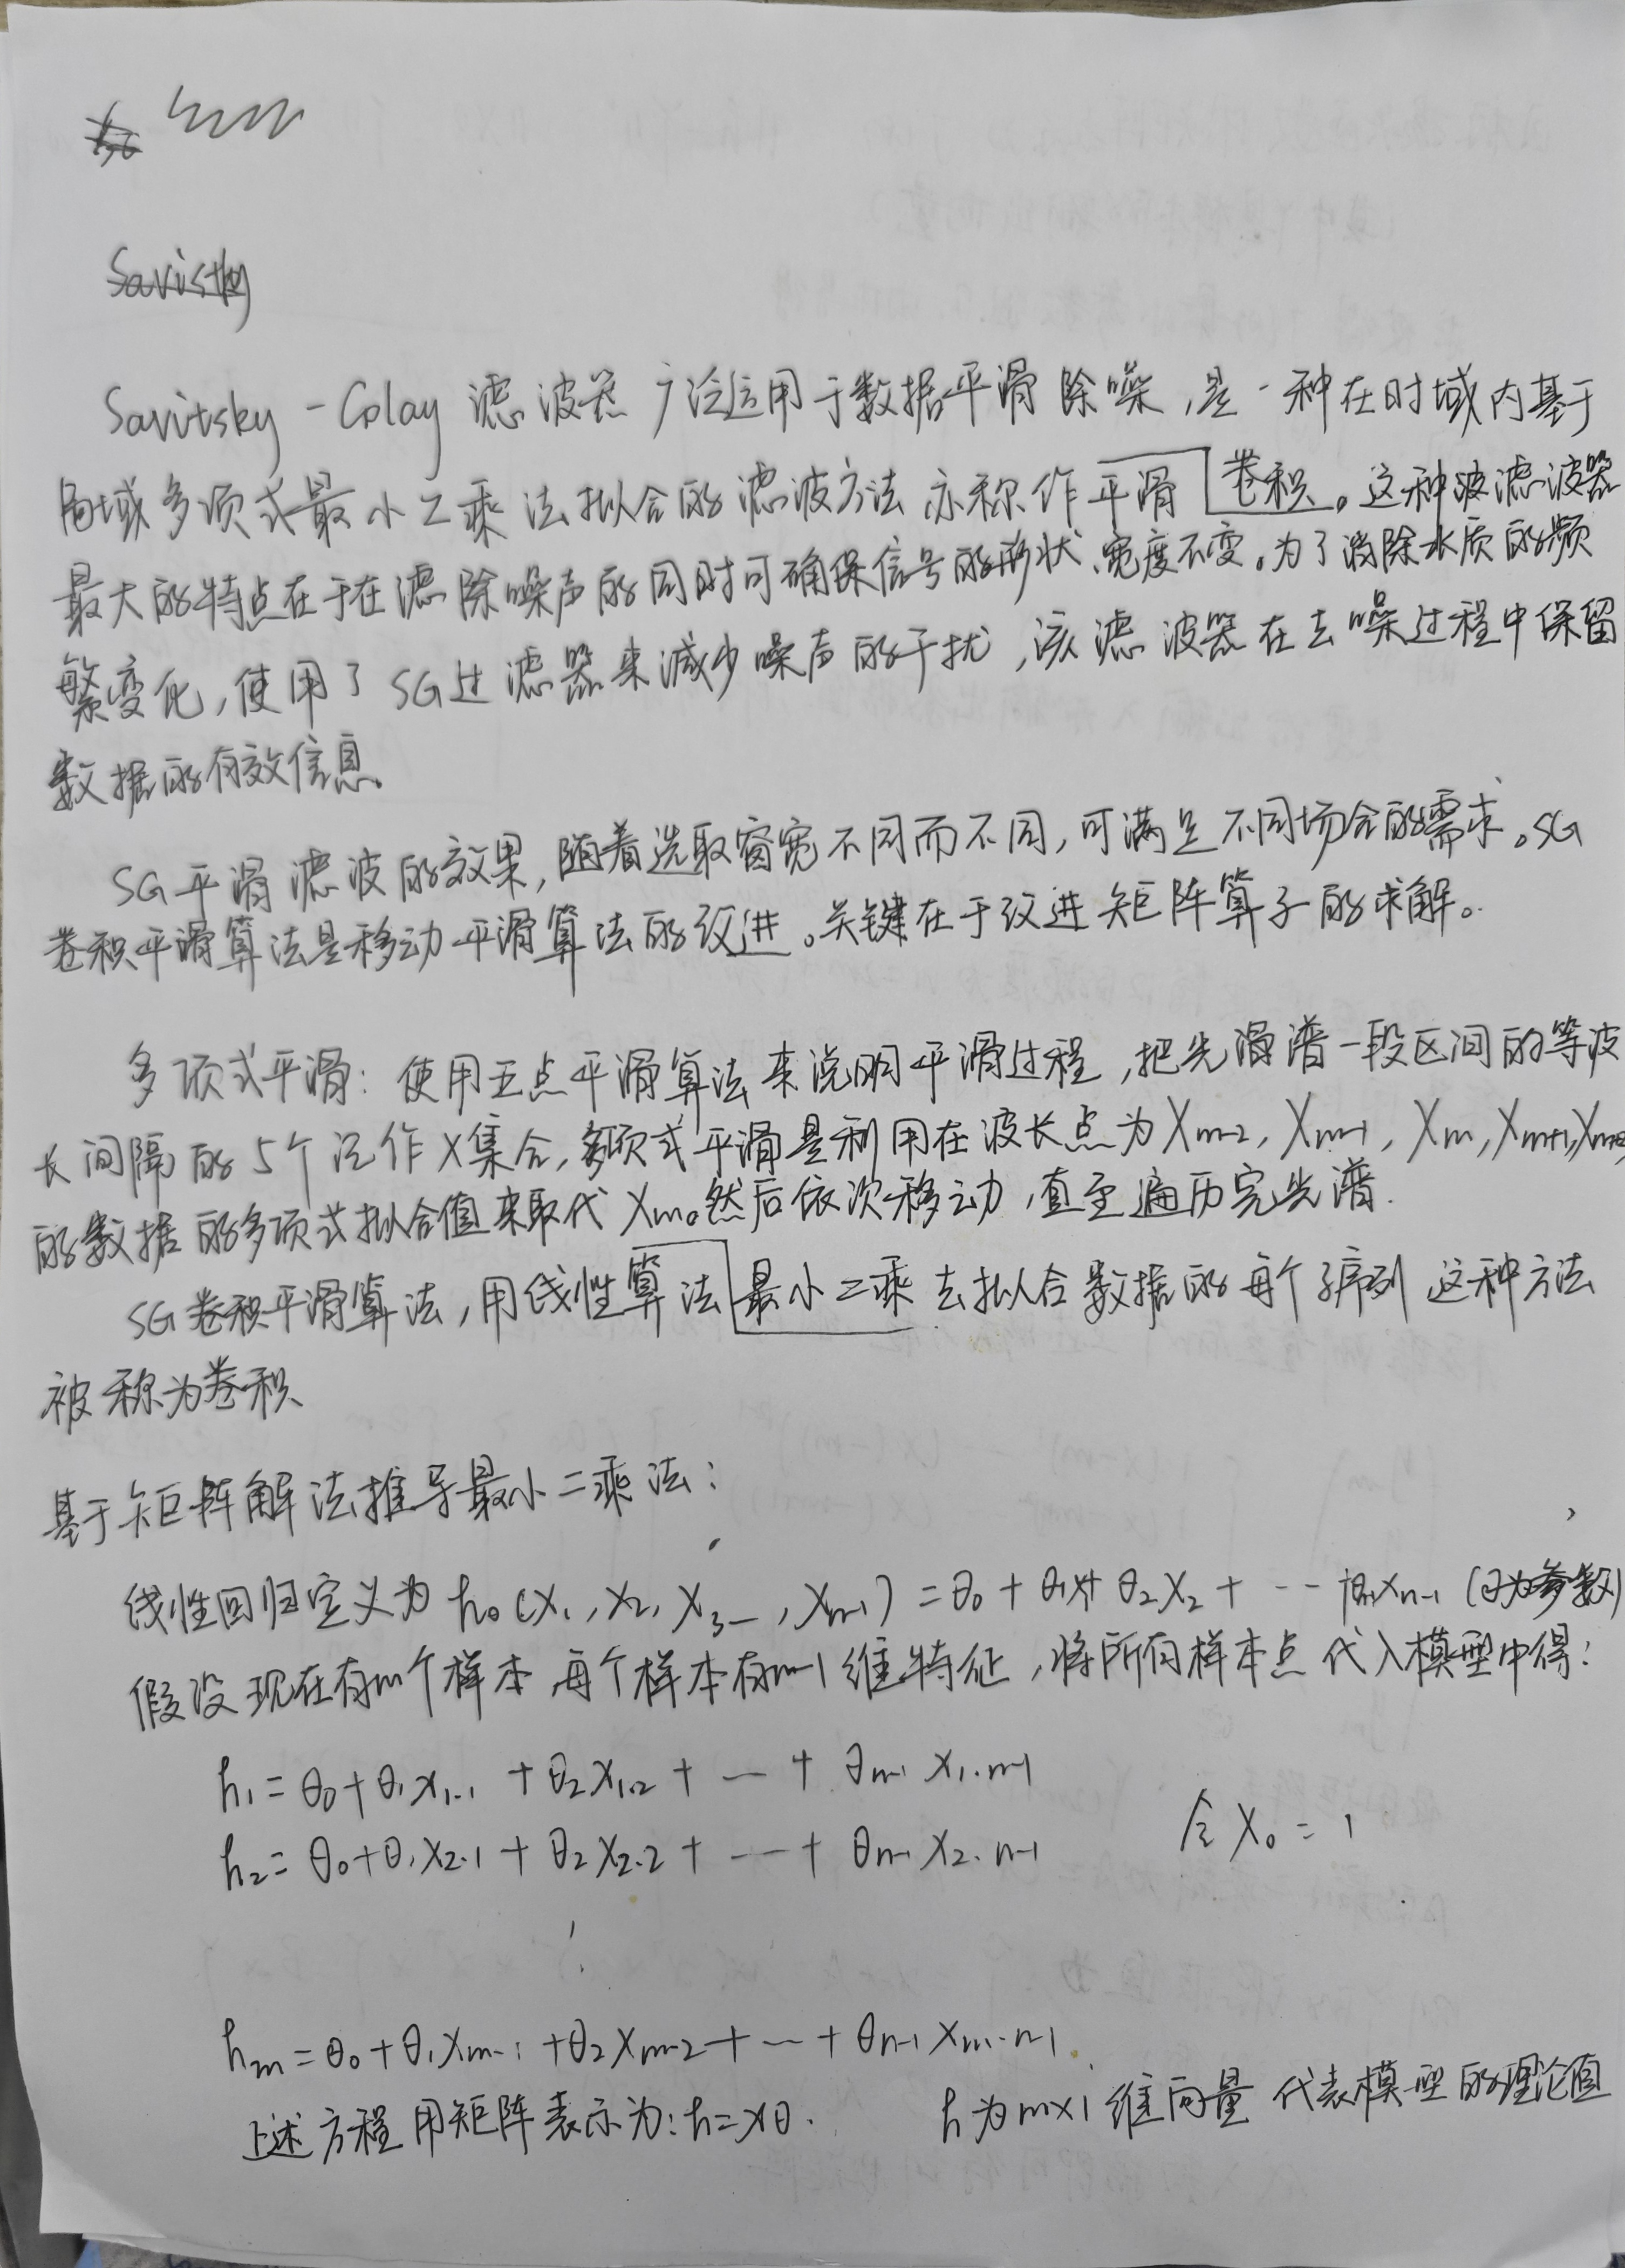 Savitsky
Savitsky - Golay 滤波器广泛运用于数据平滑除噪,是一种在时域内基于
局域多项式最小乙乘法拟合的滤波方法亦称作平滑卷积。这种波滤波器
最大的特点在于在滤除噪声的同时可确保信号的形状、宽度不变。为了消除水质的频
繁变化,使用了SG过滤器来减少噪声的干扰,该滤波器在去噪过程中保留
数据的有效信息。
SG平滑滤波的效果,随着选取窗宽不同而不同,可满足不同场合的需求。SG
卷积平滑算法是移动平滑算法的改进。关键在于改进矩阵算子的求解。
多项式平滑:使用五点平滑算法来说明平滑过程,把光滑谱一段区间的等波
长间隔的5个记作X集合,多项式平滑是利用在波长点为Xm-2, Xm-1, Xm, Xm+1, Xm+2
的数据的多项式拟合值来取代Xm。然后依次移动,直至遍历完光谱.
SG卷积平滑算法,用线性算法最小二乘去拟合数据的每个子序列 这种方法
被称为卷积
基于矩阵解法推导最小二乘法:
线性回归定义为 hθ(X1, X2, X3 …, Xn-1) = θ0 + θ1X1 + θ2X2 + … + θn-1Xn-1 (θ为参数)
假设现在有m个样本,每个样本有n-1维特征,将所有样本点代入模型中得:
h1 = θ0 + θ1X1.1 + θ2X1.2 + … + θn-1 X1.n-1
h2 = θ0 + θ1X2.1 + θ2X2.2 + … + θn-1 X2.n-1 令X0 = 1
hm = θ0 + θ1Xm.1 + θ2Xm.2 + … + θn-1 Xm.n-1
上述方程用矩阵表示为: h=Xθ. h为m×1维向量 代表模型的理论值